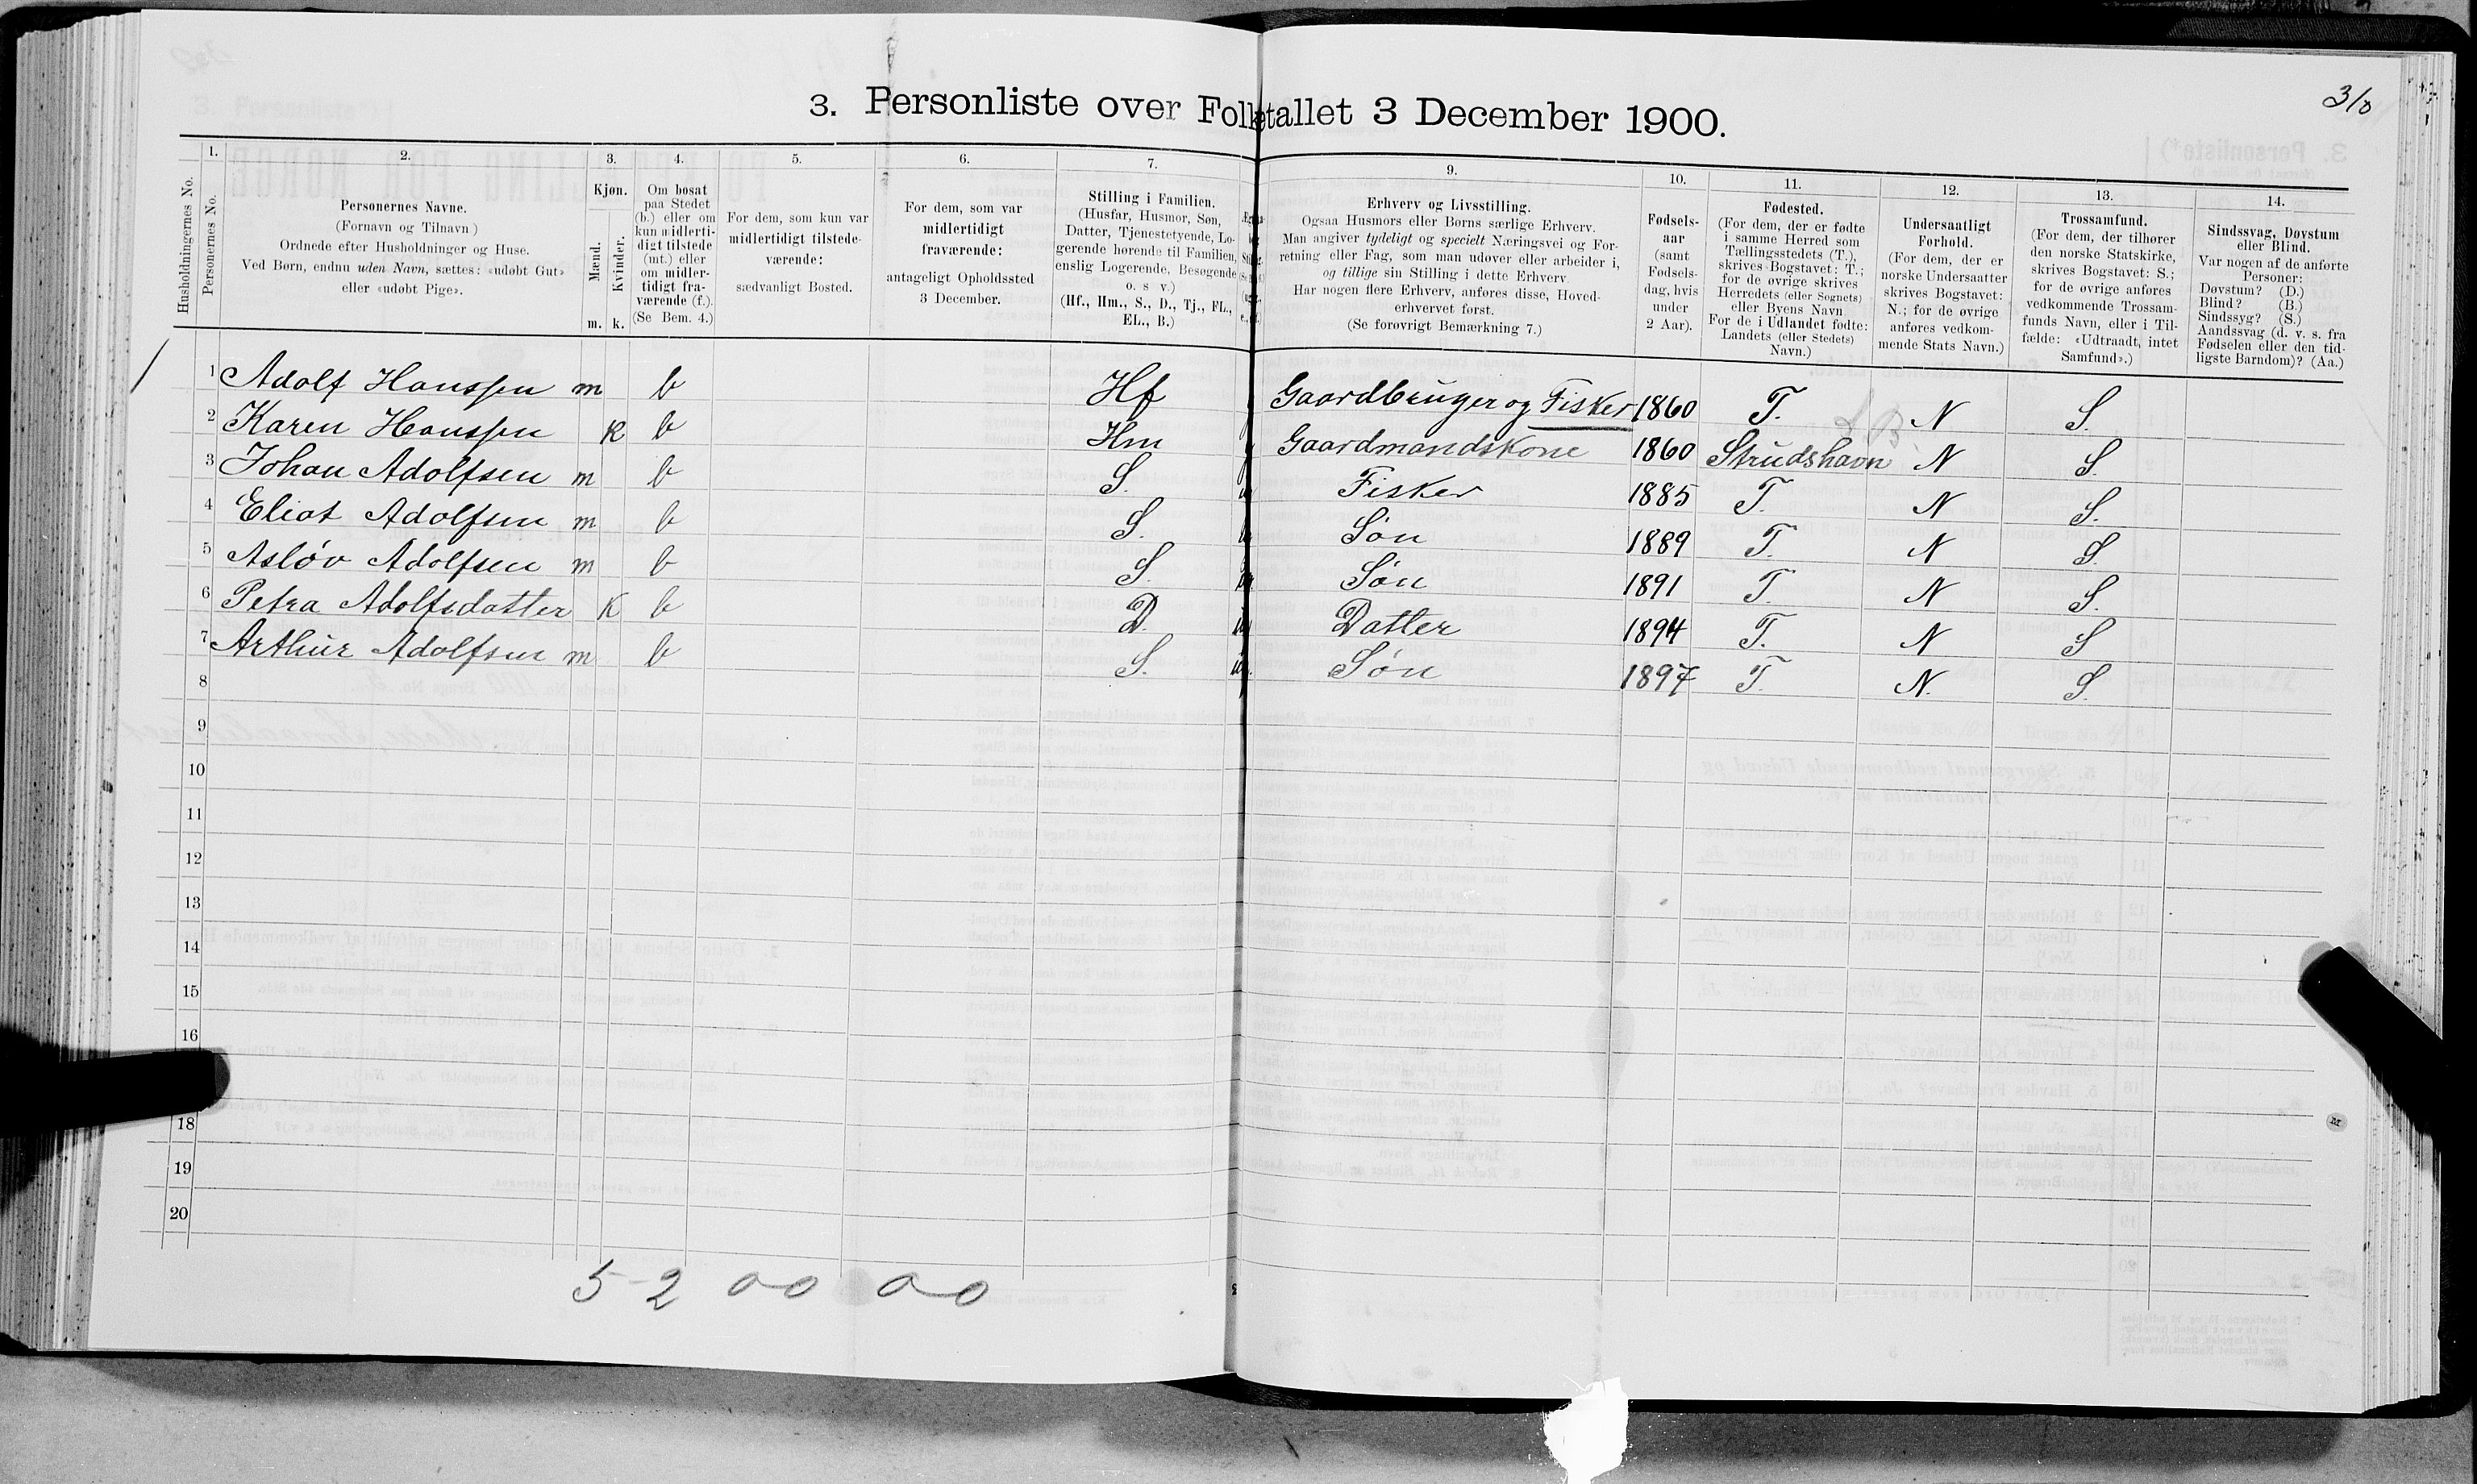 310
3. Personliste over Folketallet 3 December 1900.
1. 2. 3. 4. 5. 6. 7. 9. 10. 11. 12. 13. 14.
Husholdningernes No.
Personernes No.
Personernes Navne.
(Fornavn og Tilnavn)
Ordnede efter Husholdninger og Huse.
Ved Børn, endnu uden Navn, sættes: «udøbt Gut»
eller «udøbt Pige».
Kjøn.
Mænd.
Kvinder.
m. k.
Om bosat
paa Stedet
(b.) eller om
kun midlerti-
digt tilstede
(mt.) eller
om midler-
tidigt fra-
værende (f.).
(Se Bem. 4.)
For dem, som kun var
midlertidigt tilstede-
værende:
sædvanligt Bosted.
For dem, som var
midlertidigt
fraværende:
antageligt Opholdssted
3 December.
Stilling i Familien.
(Husfar, Husmor, Søn,
Datter, Tjenestetyende, Lo-
gerende hørende til Familien,
enslig Logerende, Besøgende
o. s v.)
(Hf., Hm., S., D., Tj., FL.,
EL., B.)
Erhverv og Livsstilling.
Ogsaa Husmors eller Børns særlige Erhverv.
Man angiver tydeligt og specielt Næringsvei og For-
retning eller Fag, som man udøver eller arbeider i,
og tillige sin Stilling i dette Erhverv.
Har nogen flere Erhverv, anføres disse, Hoved-
erhvervet først.
(Se forøvrigt Bemærkning 7.)
Fødsels-
aar
(samt
Fødsels-
dag, hvis
under
2 Aar).
Fødested.
(For dem, der er fødte
i samme Herred som
Tællingsstedets (T.),
skrives Bogstavet: T.;
for de øvrige skrives
Herredets (eller Sognets)
eller Byens Navn.
For de i Udlandet fødte:
Landets (eller Stedets)
Navn.)
Undersaatligt
Forhold.
(For dem, der er
norske Undersaatter
skrives Bogstavet:
N.; for de øvrige
anføres vedkom-
mende Stats Navn.)
Trossamfund.
(For dem, der tilhører
den norske Statskirke,
skrives Bogstavet: S.;
for de øvrige anføres
vedkommende Trossam-
funds Navn, eller i Til-
fælde: «Udtraadt, intet
Samfund».)
Sindssvag, Døvstum
eller Blind.
Var nogen af de anførte
Personer:
Døvstum? (D.)
Blind? (B.)
Sindssyg? (S.)
Aandssvag (d. v. s. fra
Fødselen eller den tid-
ligste Barndom)? (Aa.)
1 Adolf Hanssen m b Hf Gaardbruger og Fisker 1860 T. N S.
2 Karen Hanssen K b Hm Gaardmandskone 1860 Strudshavn N S.
3 Johan Adolfsen m b S. Fisker 1885 T. N S.
4 Eliot Adolfsen m b S. Søn 1889 T. N S.
5 Asløv Adolfsen m b S. Søn 1891 T. N S.
6 Petra Adolfsdatter K b D. Datter 1894 T. N S
7 Arthur Adolfsen m b S. Søn 1897 T. N. S.
8
9
10
11
12
13
14
15
16
18
19
20
5-2 00 00